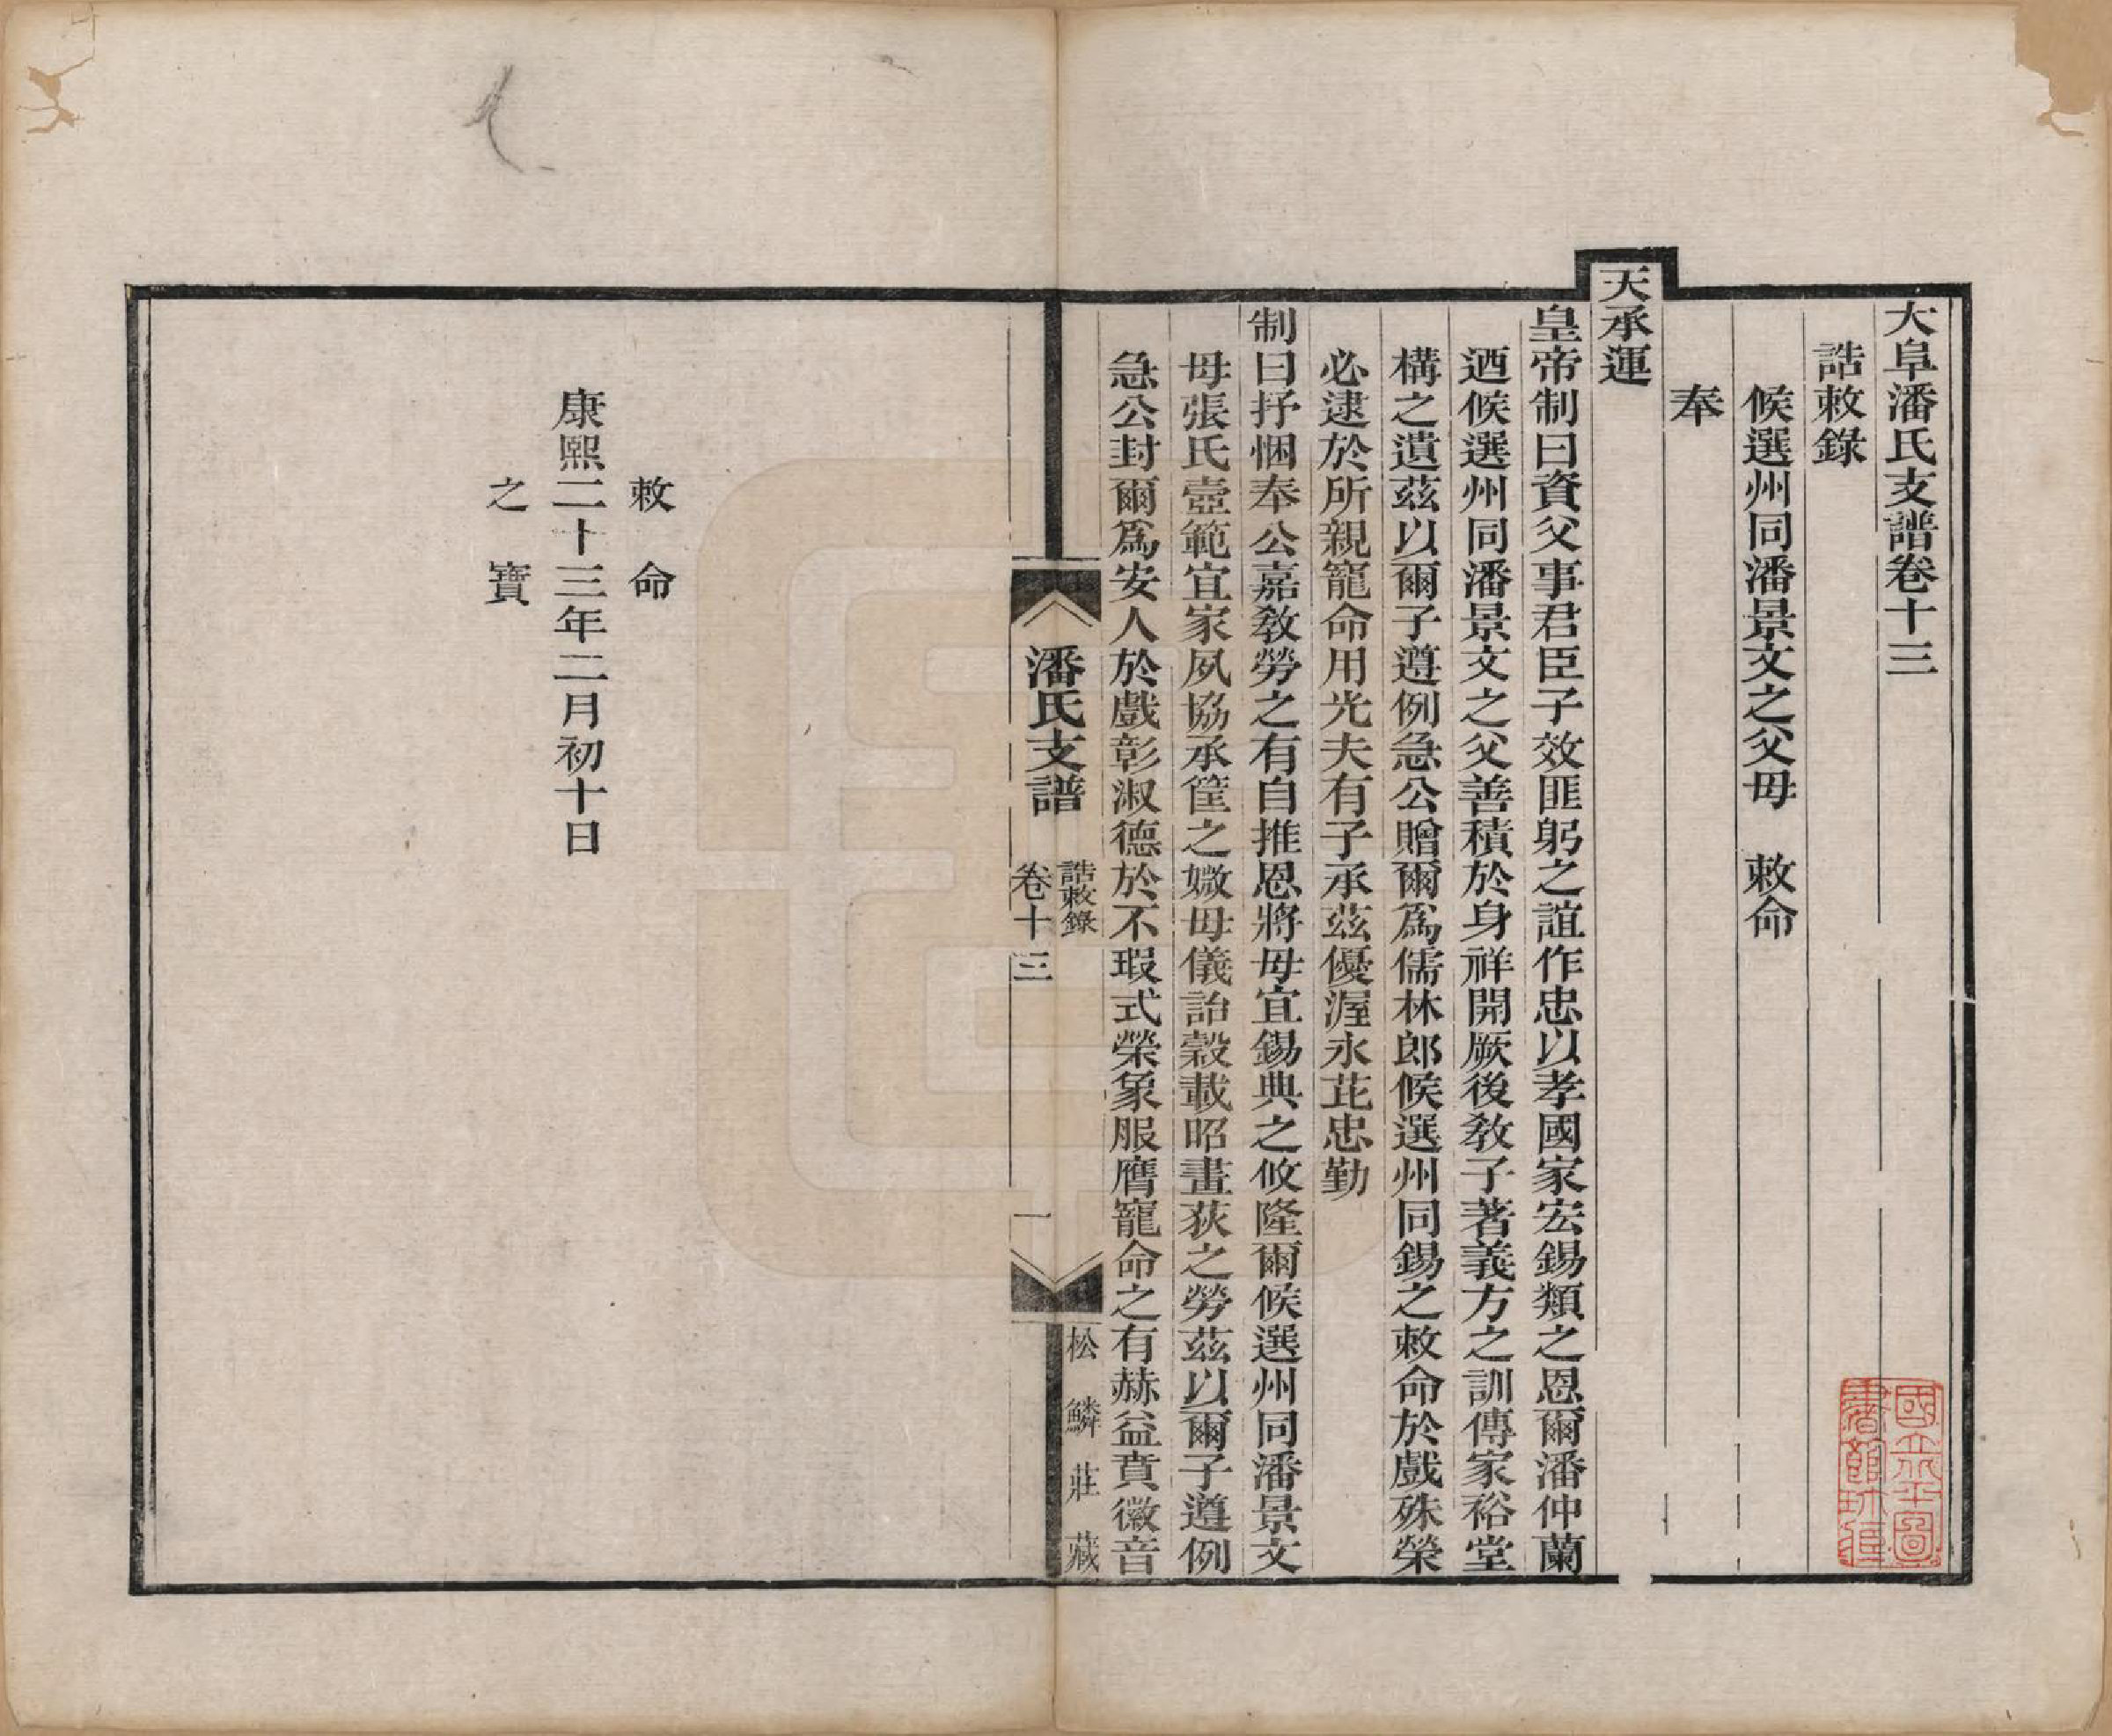 大阜潘氏支譜卷十三
誥敕錄
候選州同潘景文之父母　敕命
奉
天承運
皇帝制曰資父事君臣子效匪躬之誼作忠以孝國家宏錫類之恩爾潘仲蘭
迺候選州同潘景文之父善積於身祥開厥後教子著義方之訓傳家裕堂
構之遺茲以爾子遵例急公贈爾爲儒林郎候選州同錫之敕命於戲殊榮
必逮於所親寵命用光夫有子承茲優渥永芘忠勤
制曰抒悃奉公嘉教勞之有自推恩將母宜錫典之攸隆爾候選州同潘景文
母張氏壼範宜家夙協承筐之媺母儀詒穀載昭畫荻之勞茲以爾子遵例
急公封爾爲安人於戲彰淑德於不瑕式榮象服膺寵命之有赫益賁徽音
潘氏支譜
誥敕錄
卷十三
一
松鱗莊藏
敕命
康熙二十三年二月初十日
之寶
國立北平圖
書館珍藏